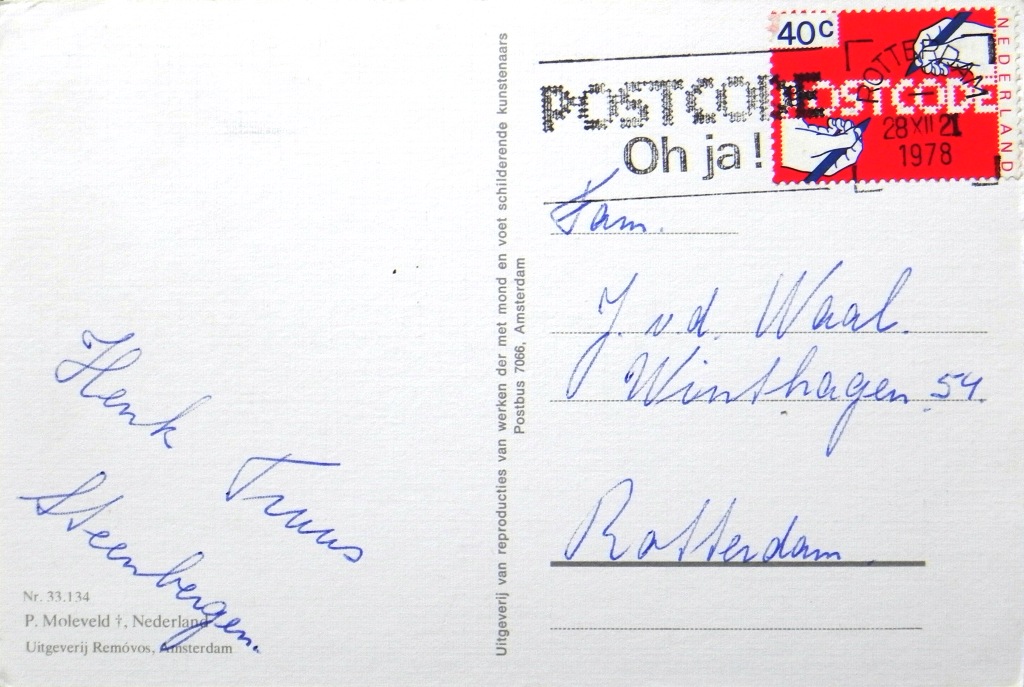 Henk
Truus
Steenbergen.
Nr. 33.134
P. Moleveld †, Nederland
Uitgeverij Removos, Amsterdam
Uitgeverij van reproducties van werken der met mond en voet schilderende kunstenaars
Postbus 7066, Amsterdam
40c
NEDERLAND
POSTCODE
POSTCODE
Oh ja!
ROTTERDAM
28 XII 21
1978
Fam.
J. v d. Waal.
Winthagen 54.
Rotterdam